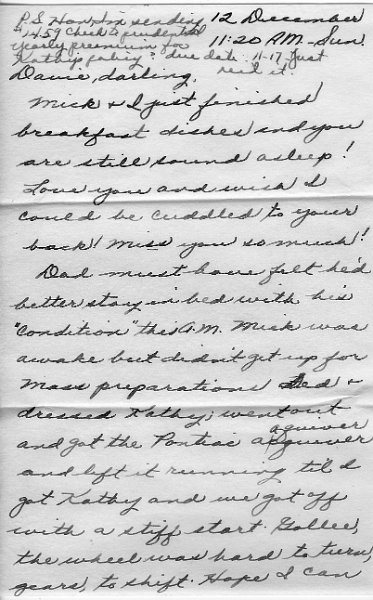 P.S. Hon, I'm sending
$14.59 check to prudential
yearly premium for
Kathy's policy? due date 11-17. Just
rec'd it.
12 December
11:20 A.M. - Sun.
Davie, darling,
Mick & I just finished
breakfast dishes and you
are still sound asleep!
Love you and wish I
could be cuddled to your
back! Miss you so much!
Dad must have felt he'd
better stay in bed with his
"condition" this A.M. Mick was
awake but didn't get up for
Mass preparations. Fed &
dressed Kathy; went out
and got the Pontiac aquiver
and left it running til I
got Kathy and we got off
with a stiff start. Gollee,
the wheel was hard to turn,
gears, to shift. Hope I can